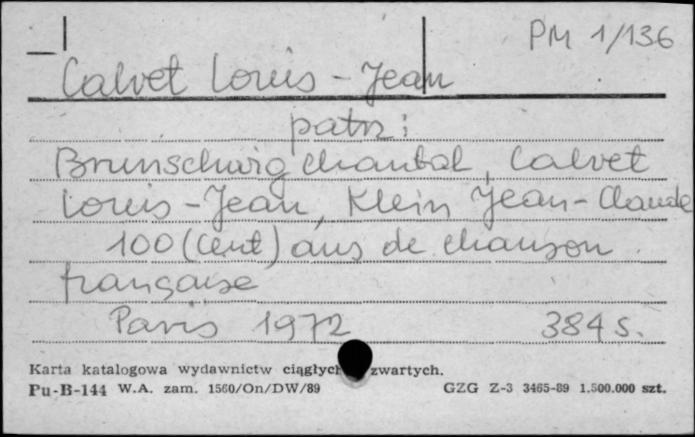 PM 1/136
Calvet Louis-Jean
patrz:
Brunschwig Chantal, Calvet
Louis-Jean, Klein Jean-Claude
100 (Cent) ans de chanson
française
Paris 1972 384 s.
Karta katalogowa wydawnictw ciągłych zwartych.
Pu-B-144 W.A. zam. 1560/On/DW/89 GZG Z-3 3465-89 1.500.000 szt.